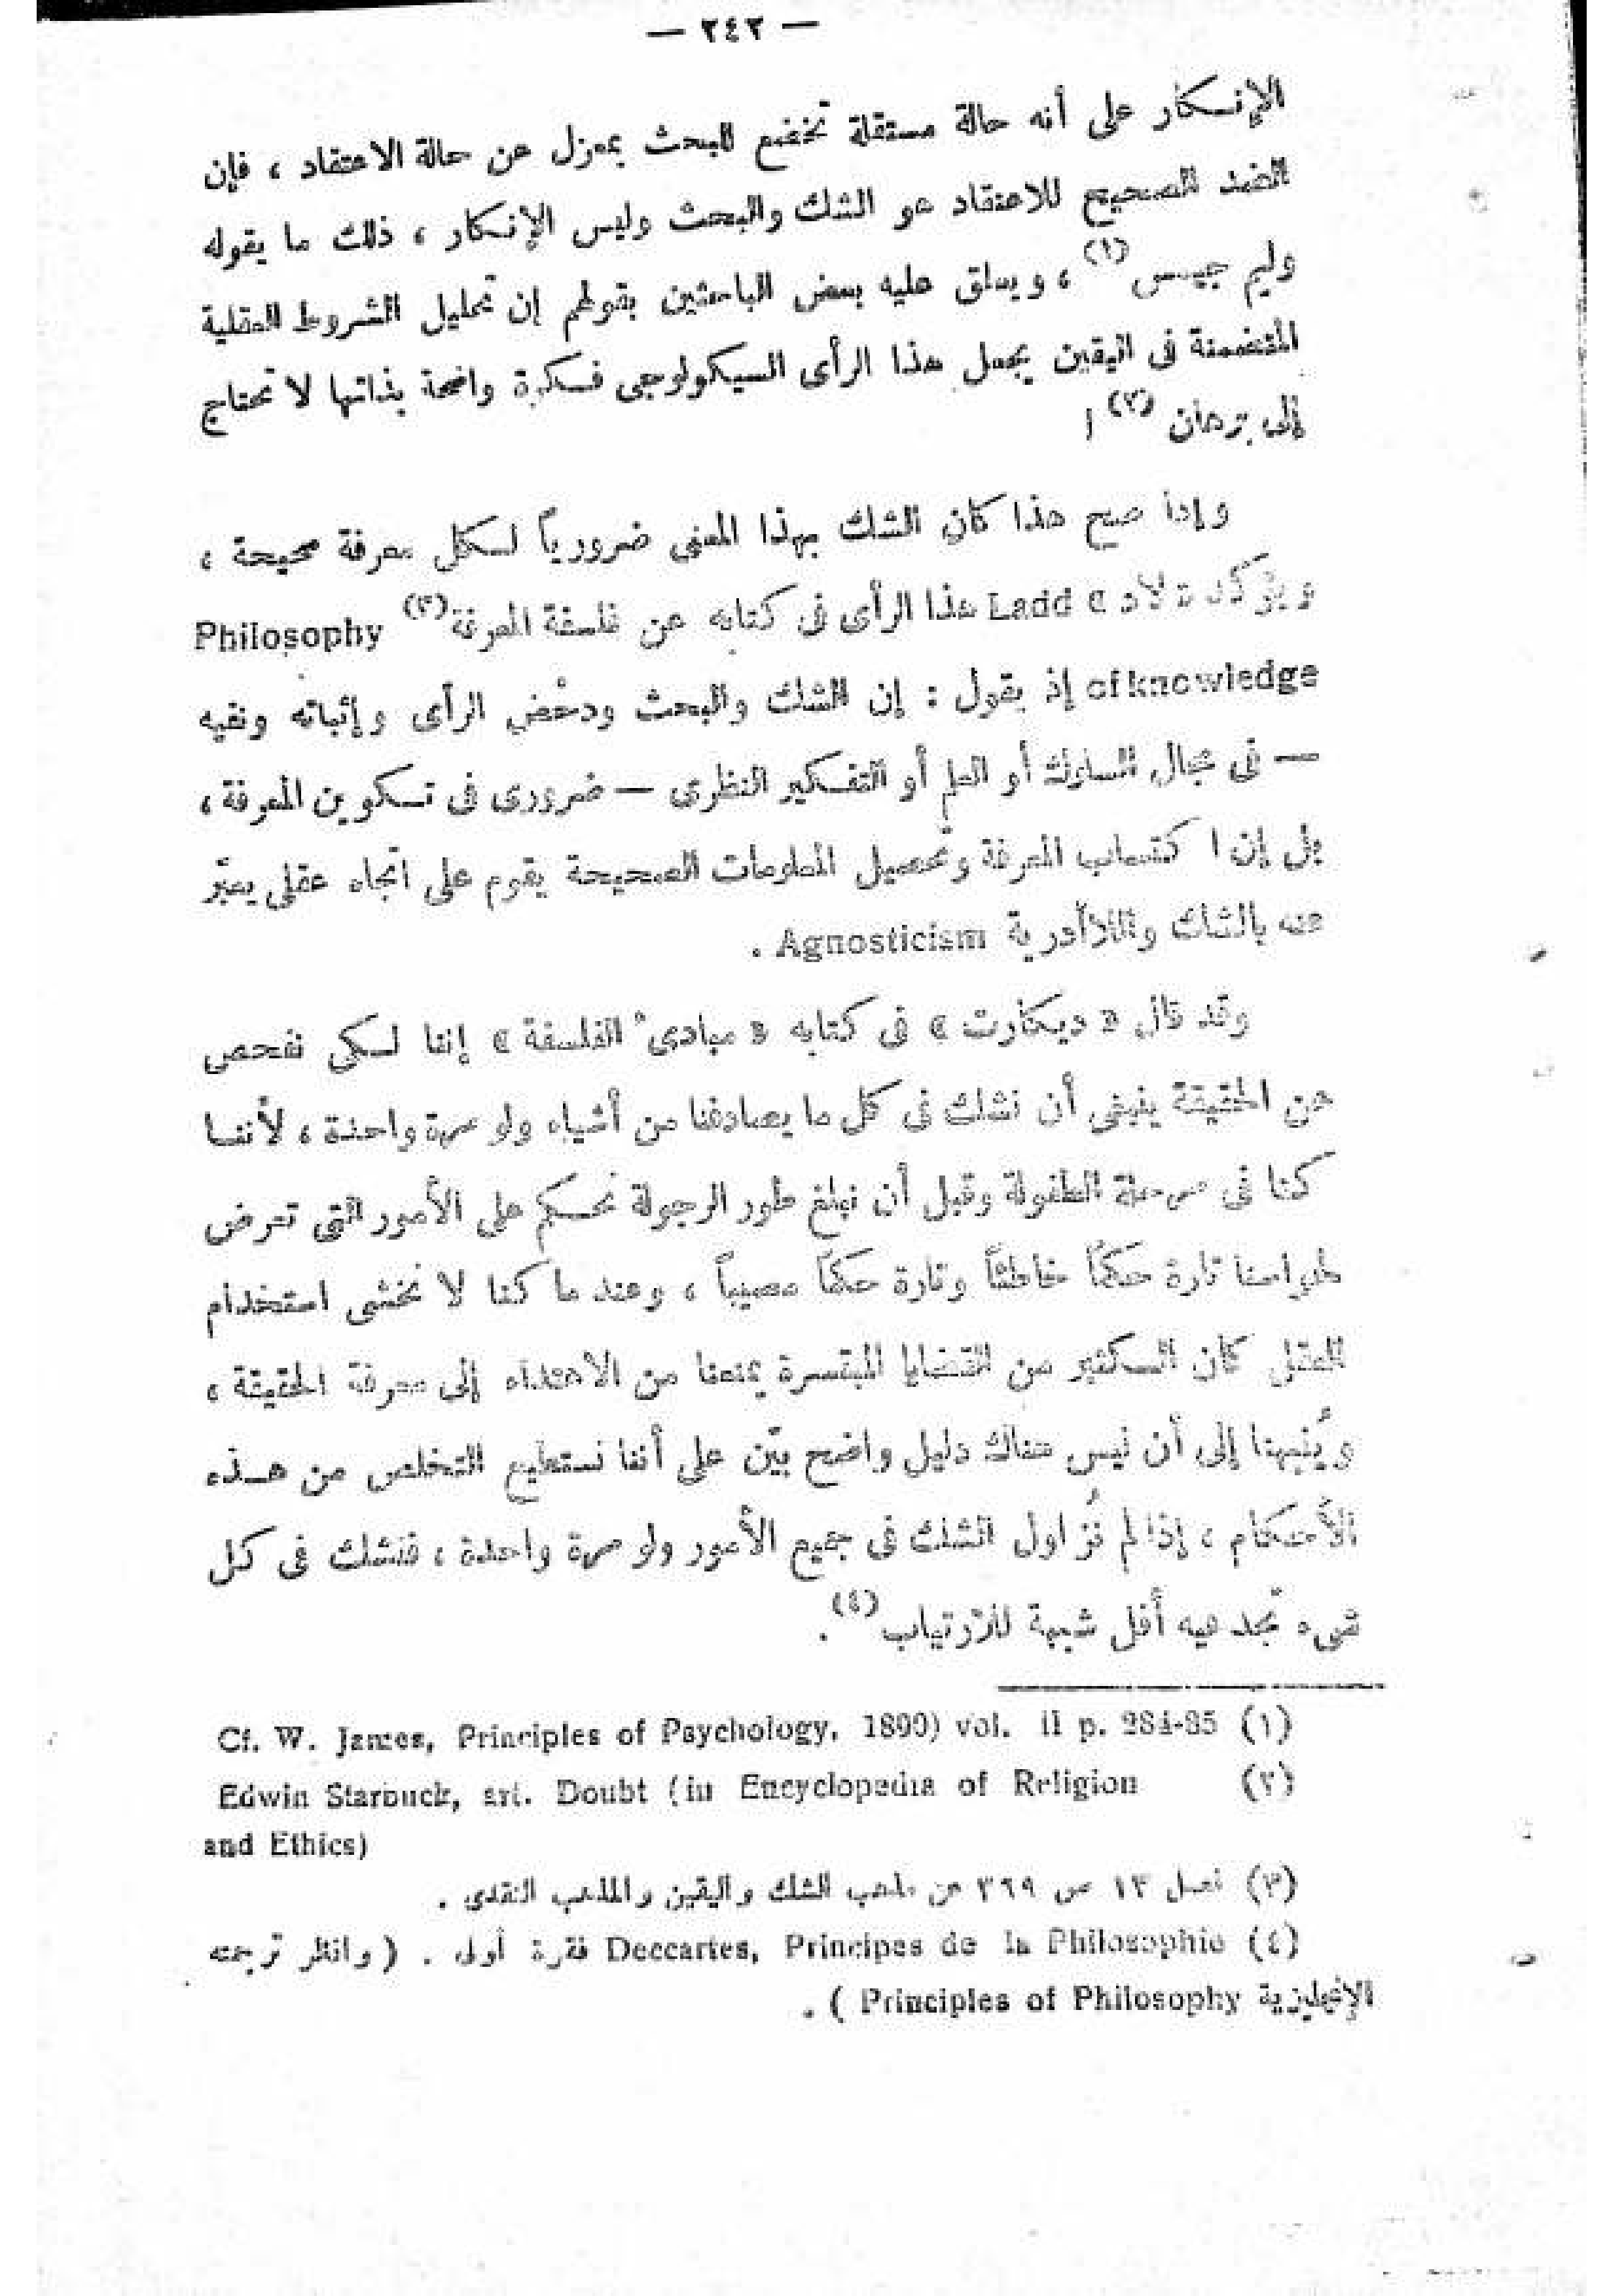 — ٢٤٢ —
الإنكار على أنه حالة مستقلة تخضع للبحث بمعزل عن حالة الاعتقاد ، فإن
الضد الصحيح للاعتقاد هو الشك والبحث وليس الإنكار ، ذلك ما يقوله
وليم جيمس (١) ، ويعلق عليه بعض الباحثين بقولهم إن تحليل الشروط العقلية
المتضمنة فى اليقين يجعل هذا الرأى السيكولوجى فكرة واضحة بذاتها لا تحتاج
إلى برهان (٢) !
وإذا صح هذا كان الشك بهذا المعنى ضرورياً لكل معرفة صحيحة ،
ويؤكد « لاد Ladd » هذا الرأى فى كتابه عن فلسفة المعرفة (٣) Philosophy
of knowledge إذ يقول : إن الشك والبحث ودحْض الرأى وإثباته ونفيه
— فى مجال السلوك أو العلم أو التفكير النظرى — ضرورى فى تكوين المعرفة ،
بل إن اكتساب المعرفة وتحصيل المعلومات الصحيحة يقوم على اتجاه عقلى يعبّر
عنه بالشك واللاأدرية Agnosticism .
وقد قال « ديكارت » فى كتابه « مبادىء الفلسفة » إننا لكى نفحص
عن الحقيقة ينبغى أن نشك فى كل ما يصادفنا من أشياء ولو مرة واحدة ، لأننا
كنا فى مرحلة الطفولة وقبل أن نبلغ طور الرجولة نحكم على الأمور التى تعرض
لحواسنا تارة حكماً خاطئاً وتارة حكماً مصيباً ، وعند ما كنا لا نخشى استخدام
العقل كان الكثير من القضايا المبتسرة يمنعنا من الاهتداء إلى معرفة الحقيقة ،
ويُنبهنا إلى أن ليس هناك دليل واضح بيّن على أننا نستطيع التخلص من هذه
الأحكام ، إذا لم نُزاول الشك فى جميع الأمور ولو مرة واحدة ، فنشك فى كل
شىء نجد فيه أقل شبهة للارتياب (٤) .
(١) Cf. W. James, Principles of Psychology, 1890) vol. II p. 284-85
(٢) Edwin Starbuck, art. Doubt (in Encyclopedia of Religion
and Ethics)
(٣) فصل ١٣ ص ٣٦٩ عن مذهب الشك واليقين والمذهب النقدى .
(٤) Deccartes, Principes de la Philosophie فقرة أولى . ( وانظر ترجمته
الإنجليزية Principles of Philosophy ) .